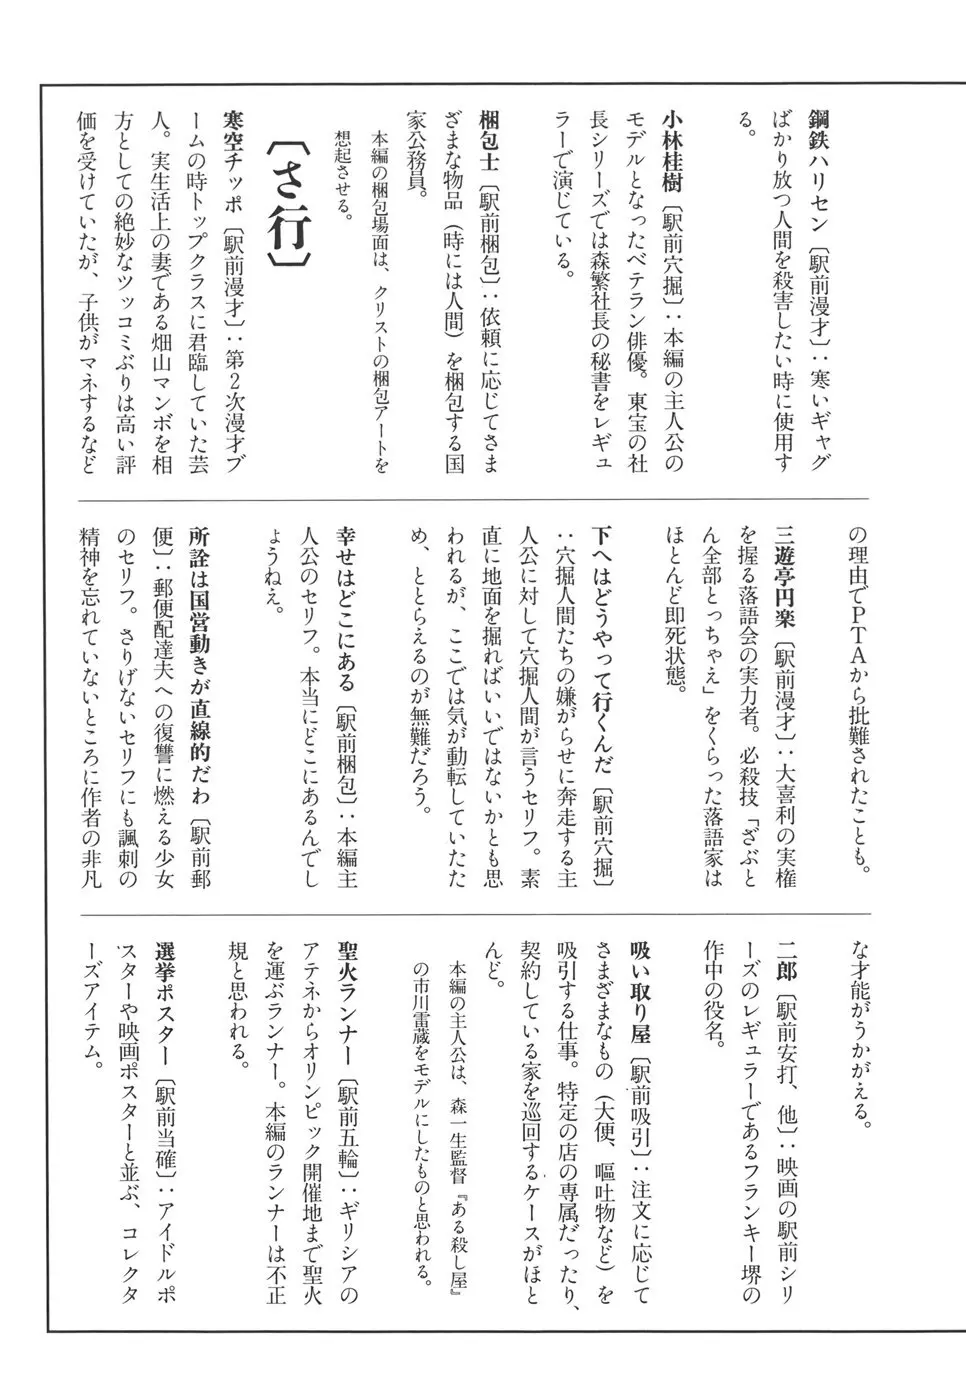 鋼鉄ハリセン〔駅前漫才〕：寒いギャグ
ばかり放つ人間を殺害したい時に使用す
る。
小林桂樹〔駅前穴掘〕：本編の主人公の
モデルとなったベテラン俳優。東宝の社
長シリーズでは森繁社長の秘書をレギュ
ラーで演じている。
梱包士〔駅前梱包〕：依頼に応じてさま
ざまな物品（時には人間）を梱包する国
家公務員。
本編の梱包場面は、クリストの梱包アートを
想起させる。
〔さ行〕
寒空チッポ〔駅前漫才〕：第2次漫才ブ
ームの時トップクラスに君臨していた芸
人。実生活上の妻である畑山マンボを相
方としての絶妙なツッコミぶりは高い評
価を受けていたが、子供がマネするなど
の理由でPTAから批難されたことも。
三遊亭円楽〔駅前漫才〕：大喜利の実権
を握る落語会の実力者。必殺技「ざぶと
ん全部とっちゃえ」をくらった落語家は
ほとんど即死状態。
下へはどうやって行くんだ〔駅前穴掘〕
：穴掘人間たちの嫌がらせに奔走する主
人公に対して穴掘人間が言うセリフ。素
直に地面を掘ればいいではないかとも思
われるが、ここでは気が動転していたた
め、ととらえるのが無難だろう。
幸せはどこにある〔駅前梱包〕：本編主
人公のセリフ。本当にどこにあるんでし
ょうねえ。
所詮は国営動きが直線的だわ〔駅前郵
便〕：郵便配達夫への復讐に燃える少女
のセリフ。さりげないセリフにも諷刺の
精神を忘れていないところに作者の非凡
な才能がうかがえる。
二郎〔駅前安打、他〕：映画の駅前シリ
ーズのレギュラーであるフランキー堺の
作中の役名。
吸い取り屋〔駅前吸引〕：注文に応じて
さまざまなもの（大便、嘔吐物など）を
吸引する仕事。特定の店の専属だったり、
契約している家を巡回するケースがほと
んど。
本編の主人公は、森一生監督『ある殺し屋』
の市川雷蔵をモデルにしたものと思われる。
聖火ランナー〔駅前五輪〕：ギリシアの
アテネからオリンピック開催地まで聖火
を運ぶランナー。本編のランナーは不正
規と思われる。
選挙ポスター〔駅前当確〕：アイドルポ
スターや映画ポスターと並ぶ、コレクタ
ーズアイテム。